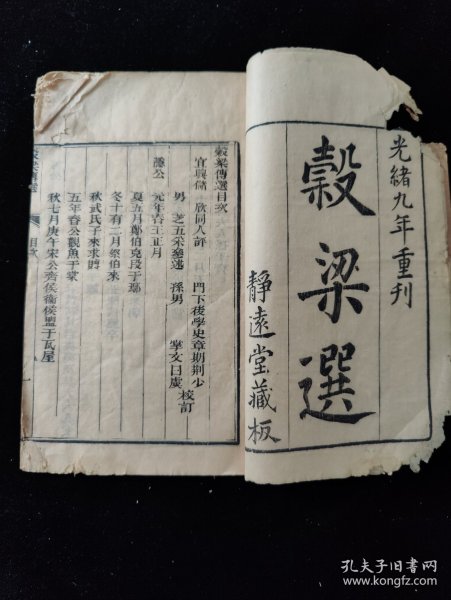 光緒九年重刊
穀梁選
靜遠堂藏板
穀梁傳選目次
宜興儲 欣同人評 門下後學史章期荆少
男 芝五采參述 孫男 掌文曰虞 校訂
隱公 元年春王正月
夏五月鄭伯克段于鄢
冬十有二月祭伯來
秋武氏子來求賻
五年春公觀魚于棠
秋七月庚午宋公齊侯衞侯盟于瓦屋
目次
孔夫子旧书网
www.kongfz.com